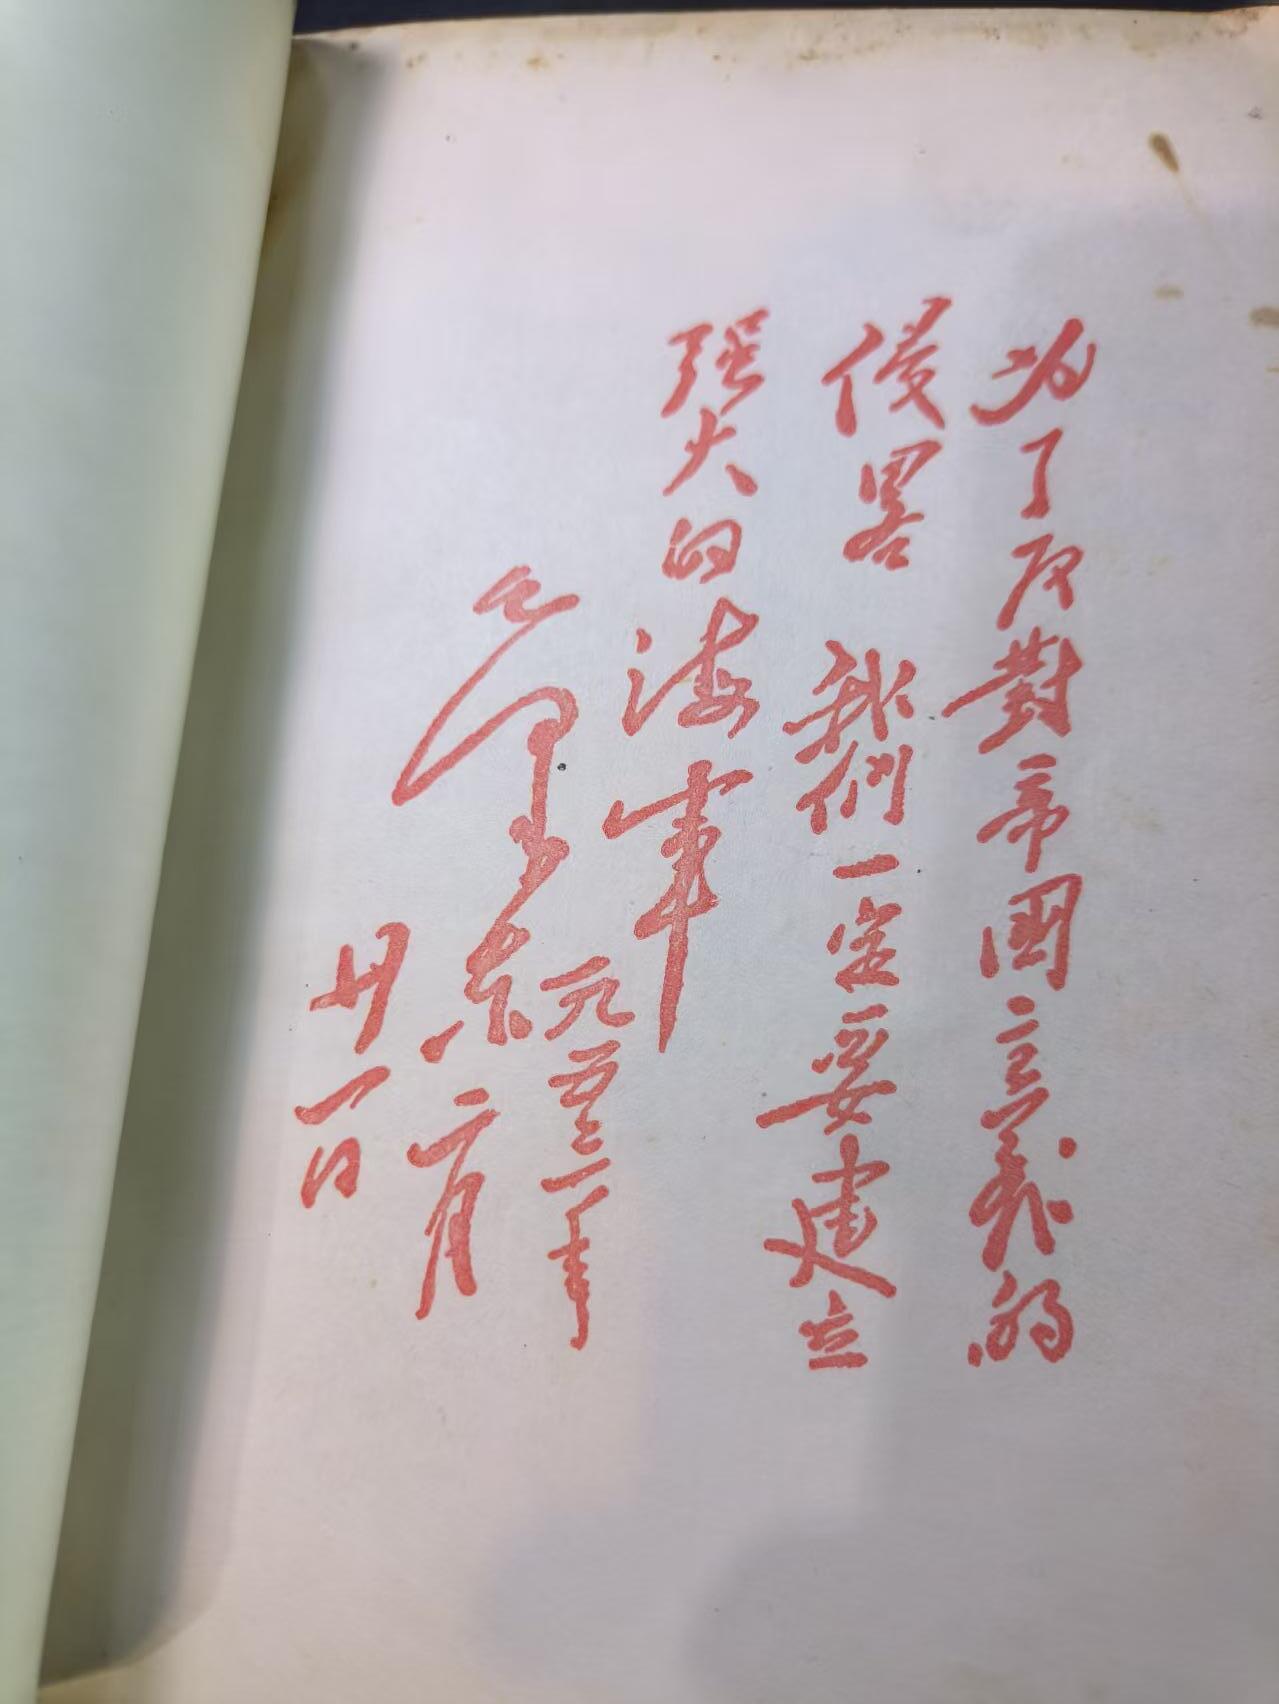 为了反對帝國主義的
侵畧 我們一定要建立
强大的海军
毛泽东
一九五三年
二月
廿一日